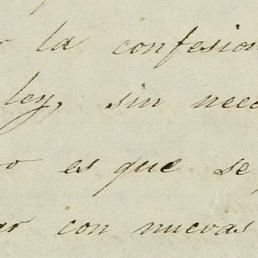 la confesion
ley, sin nece
es que se
ar con nuevas